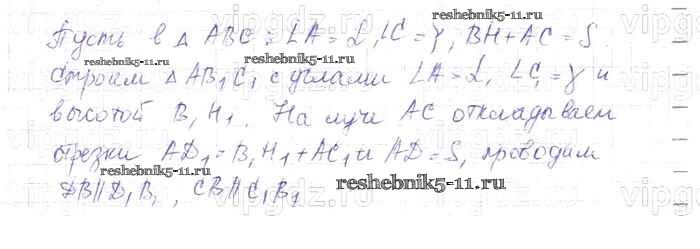 Пусть в △ ABC: ∠A = α, ∠C = γ, BH + AC = S.
Строим △ AB₁C₁ с углами ∠A = α, ∠C₁ = γ и
высотой B₁H₁. На луче AC откладываем
отрезки AD₁ = B₁H₁ + AC₁ и AD = S, проводим
DB ∥ D₁B₁, CB ∥ C₁B₁
reshebnik5-11.ru
reshebnik5-11.ru
reshebnik5-11.ru
reshebnik5-11.ru
vipgdz.ru
vipgdz.ru
vipgdz.ru